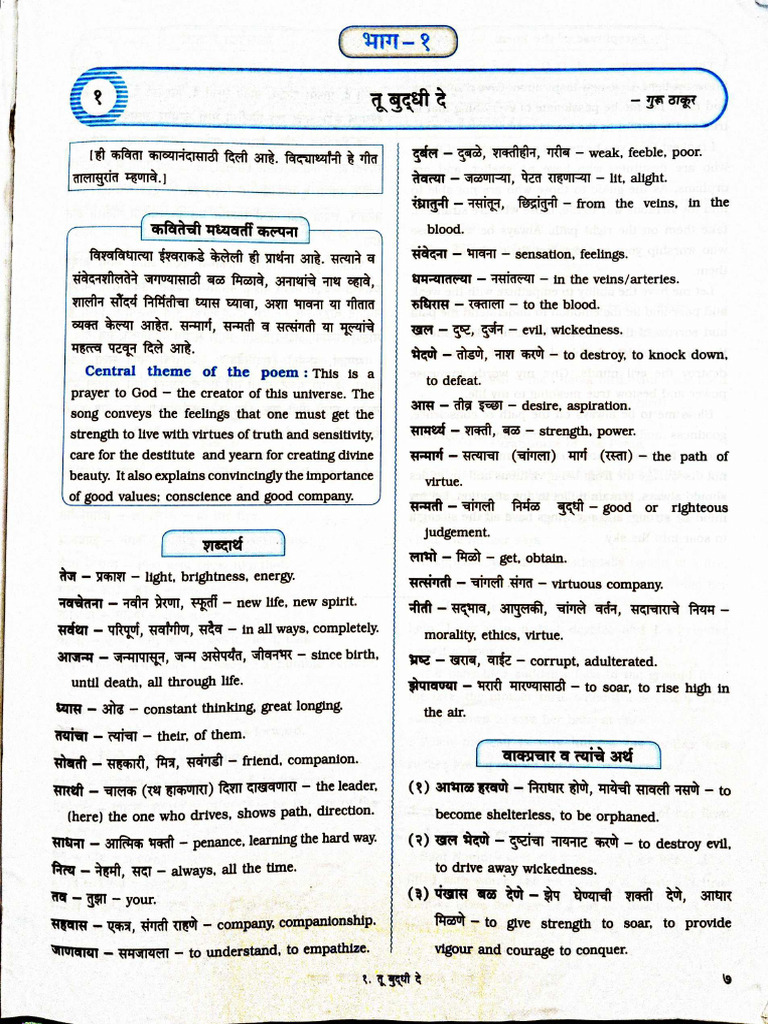 भाग – १
१
तू बुद्धी दे
– गुरू ठाकूर
[ही कविता काव्यानंदासाठी दिली आहे. विद्यार्थ्यांनी हे गीत
तालासुरांत म्हणावे.]
कवितेची मध्यवर्ती कल्पना
विश्वविधात्या ईश्वराकडे केलेली ही प्रार्थना आहे. सत्याने व
संवेदनशीलतेने जगण्यासाठी बळ मिळावे, अनाथांचे नाथ व्हावे,
शालीन सौंदर्य निर्मितीचा ध्यास घ्यावा, अशा भावना या गीतात
व्यक्त केल्या आहेत. सन्मार्ग, सन्मती व सत्संगती या मूल्यांचे
महत्त्व पटवून दिले आहे.
Central theme of the poem : This is a
prayer to God – the creator of this universe. The
song conveys the feelings that one must get the
strength to live with virtues of truth and sensitivity,
care for the destitute and yearn for creating divine
beauty. It also explains convincingly the importance
of good values; conscience and good company.
शब्दार्थ
तेज – प्रकाश – light, brightness, energy.
नवचेतना – नवीन प्रेरणा, स्फूर्ती – new life, new spirit.
सर्वथा – परिपूर्ण, सर्वांगीण, सदैव – in all ways, completely.
आजन्म – जन्मापासून, जन्म असेपर्यंत, जीवनभर – since birth,
until death, all through life.
ध्यास – ओढ – constant thinking, great longing.
तयांचा – त्यांचा – their, of them.
सोबती – सहकारी, मित्र, सवंगडी – friend, companion.
सारथी – चालक (रथ हाकणारा) दिशा दाखवणारा – the leader,
(here) the one who drives, shows path, direction.
साधना – आत्मिक भक्ती – penance, learning the hard way.
नित्य – नेहमी, सदा – always, all the time.
तव – तुझा – your.
सहवास – एकत्र, संगती राहणे – company, companionship.
जाणवाया – समजायला – to understand, to empathize.
दुर्बल – दुबळे, शक्तीहीन, गरीब – weak, feeble, poor.
तेवत्या – जळणाऱ्या, पेटत राहणाऱ्या – lit, alight.
रंध्रातुनी – नसांतून, छिद्रांतुनी – from the veins, in the
blood.
संवेदना – भावना – sensation, feelings.
धमन्यातल्या – नसांतल्या – in the veins/arteries.
रुधिरास – रक्ताला – to the blood.
खल – दुष्ट, दुर्जन – evil, wickedness.
भेदणे – तोडणे, नाश करणे – to destroy, to knock down,
to defeat.
आस – तीव्र इच्छा – desire, aspiration.
सामर्थ्य – शक्ती, बळ – strength, power.
सन्मार्ग – सत्याचा (चांगला) मार्ग (रस्ता) – the path of
virtue.
सन्मती – चांगली निर्मळ बुद्धी – good or righteous
judgement.
लाभो – मिळो – get, obtain.
सत्संगती – चांगली संगत – virtuous company.
नीती – सद्भाव, आपुलकी, चांगले वर्तन, सदाचाराचे नियम –
morality, ethics, virtue.
भ्रष्ट – खराब, वाईट – corrupt, adulterated.
झेपावण्या – भरारी मारण्यासाठी – to soar, to rise high in
the air.
वाक्प्रचार व त्यांचे अर्थ
(१) आभाळ हरवणे – निराधार होणे, मायेची सावली नसणे – to
become shelterless, to be orphaned.
(२) खल भेदणे – दुष्टांचा नायनाट करणे – to destroy evil,
to drive away wickedness.
(३) पंखास बळ देणे – झेप घेण्याची शक्ती देणे, आधार
मिळणे – to give strength to soar, to provide
vigour and courage to conquer.
१. तू बुद्धी दे
७